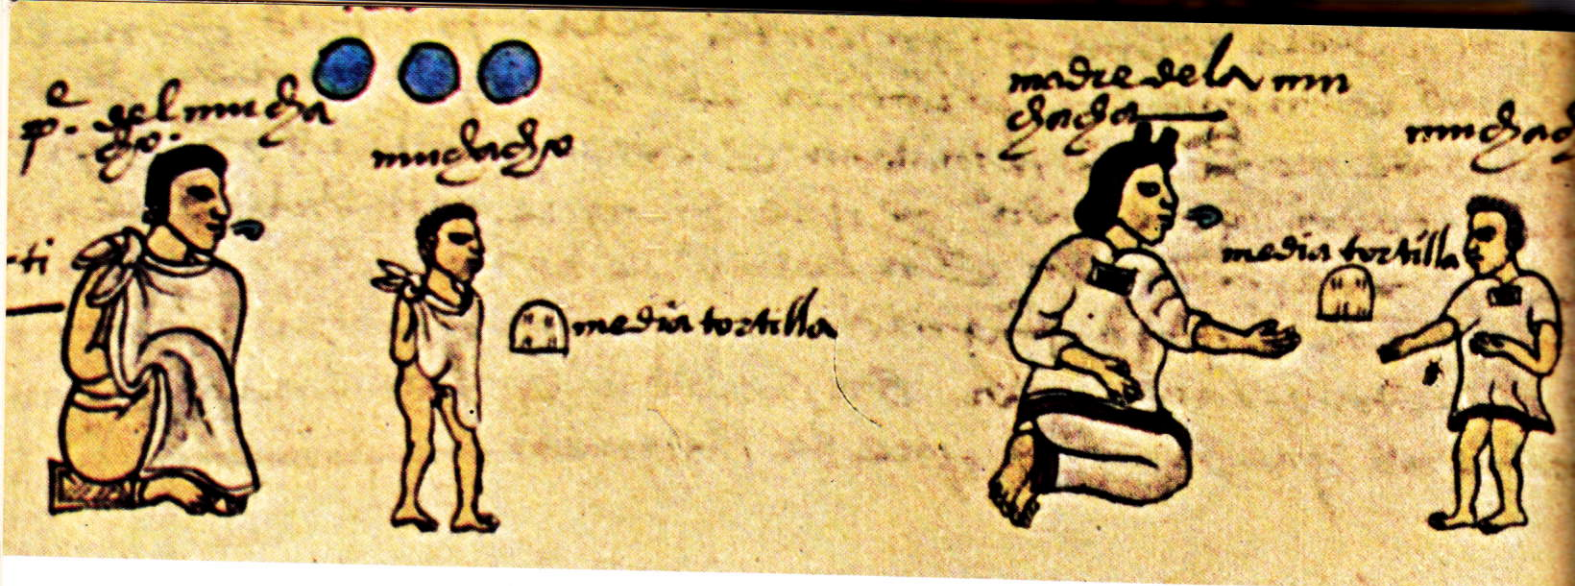 pe. del mucha
cho.
muchacho
media tortilla
madre de la mu
chacha
muchach
media tortilla